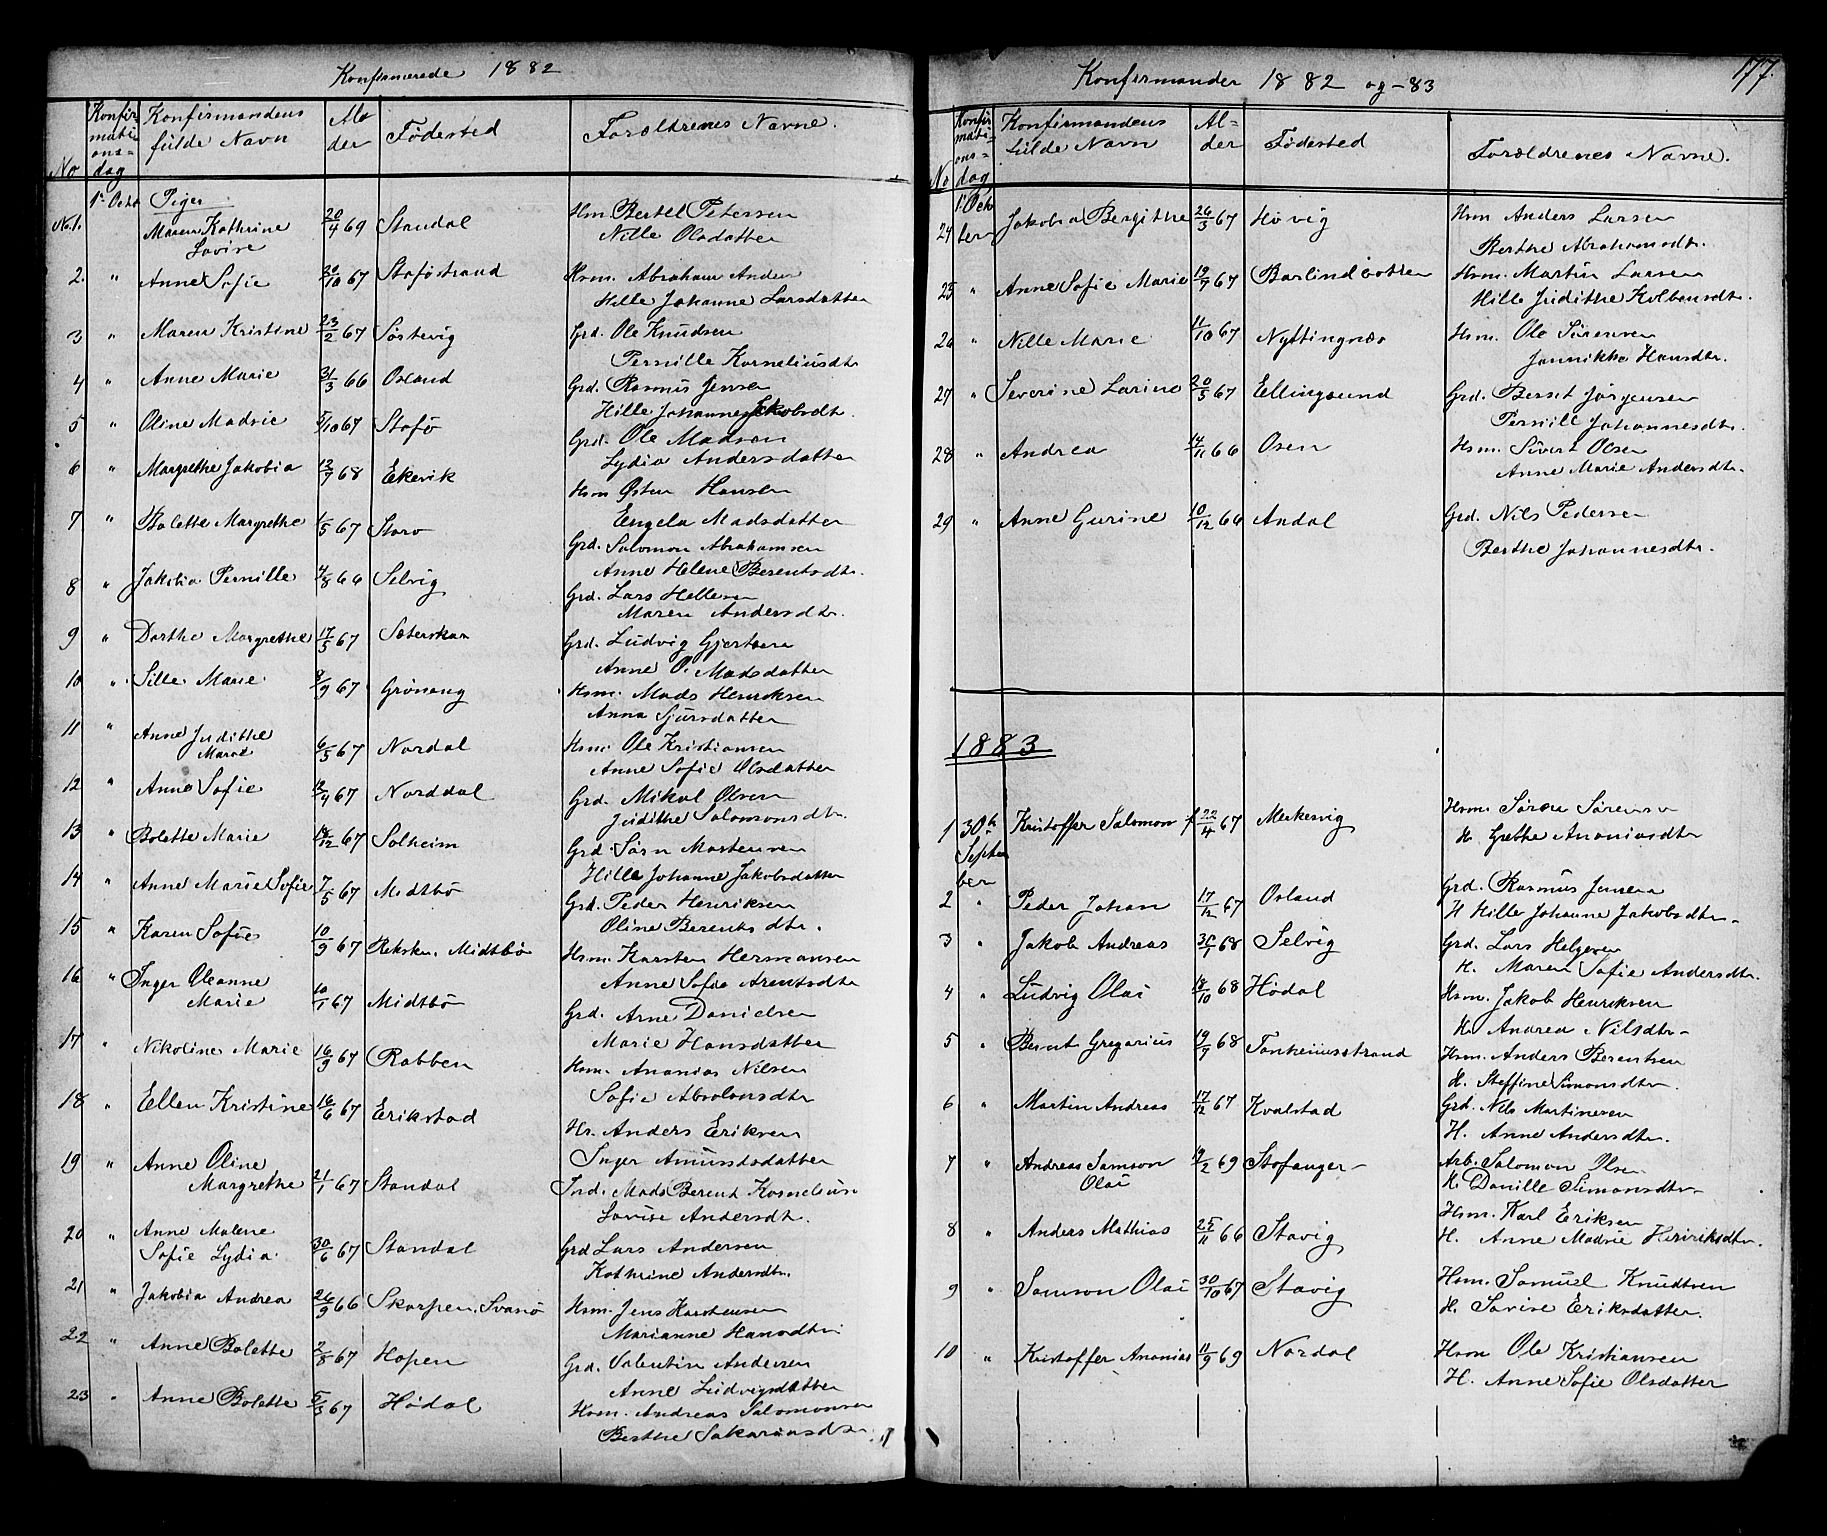 Konfirmerede 1882
No
Konfir
mati
ons=
dag
Konfirmandens
fulde Navn
Al
der
Fødested
Forældrenes Navne.
1ste Octo
Piger
No 1. Maren Kathrine 20/4 69 Standal Hsm Bertel Petersen
Lovise Nille Olsdatter
2. " Anne Sofie 30/10 67 Stoføstrand Hsm. Abraham Anders
Hille Johanne Larsdatter
3 " Maren Kristine 23/2 67 Søstevig Grd. Ole Knudsen
Pernille Korneliusdtr
4 " Anne Marie 31/3 66 Osland Grd. Rasmus Jensen
Hille Johanne Jakobsdt.
5 " Oline Madvie 5/10 67 Stofø Grd. Ole Madsen
Lydia Andersdatter
6 " Margrethe Jakobia 12/9 68 Ekevik Hsm Østen Hansen
Engela Madsdatter
7 " Bolette Margrethe 1/5 67 Staro Grd. Salomon Abrahamsen
Anne Helene Berentsdtr.
8 " Jakobia Pernille 4/8 66 Selvig Grd. Lars Hellesen
Maren Andersdtr.
9 " Dorthe Margrethe 17/5 67 Sæterskar Grd. Ludvig Gjertsen
Anne O. Madsdatter
10 " Sille Marie 8/9 67 Grøneng Hsm. Mads Henriksen
Anna Sjursdatter
11 " Anne Judithe
Marie 6/5 67 Nordal Hsm. Ole Kristiansen
Anne Sofie Olsdatter
12 " Anne Sofie 12/4 67 Norddal Grd. Mikal Olsen
Judithe Salomonsdtr.
13 " Bolette Marie 18/12 67 Solheim Grd. Sørn Mortensen
Hille Johanne Jakobsdatter
14 " Anne Marie Sofie 7/5 67 Midtbø Grd. Peder Henriksen
Oline Berentsdtr.
15 " Karen Sofie 10/9 67 Reksten. Midtbø Hsm. Karsten Hermansen
Anne Sofie Arentsdtr
16 " Inger Oleanne
Marie 10/1 67 Midtbø Grd. Arne Danielsen
Marie Hansdatter
17 " Nikoline Marie 16/9 67 Rabben Hsm. Ananias Nilsen
Sofie Absalonsdtr
18 " Ellen Kristine 16/6 67 Erikstad Hr. Anders Eriksen
Inger Amundsdatter
19 " Anne Oline
Margrethe 21/1 67 Standal Ind. Mads Berent Kornelius
Lovise Andersdt.
20 " Anne Malene
Sofie Lydia 30/6 67 Standal Grd Lars Andersen
Kathrine Andersdtr.
21 " Jakobia Andrea 26/9 66 Skorpen. Svanø Hsm. Jens Karstensen
Marianne Hansdtr
22 " Anne Bolette 2/8 67 Hopen Grd. Valentin Andersen
Anne Ludvigsdatter
23 " Anne Bolette 5/3 67 Hødal Hsm. Andreas Salomonsen
Berthe Sakariasdtr
Konfirmander 1882 og -83
177.
No
Konfir
mati-
ons-
dag
Konfirmandens
fulde Navn
Al-
der
Fødested
Forældrenes Navne.
1ste Octo
ber
24 Jakobia Bergithe 26/3 67 Høvig Hsm Anders Larsen
Berthe Abrahamsdtr.
25 " Anne Sofie Marie 19/9 67 Barlindbotten Hsm. Martin Larsen
Hille Judithe Kolbensdtr.
26 " Nille Marie 11/10 67 Nyttingnæs Hsm. Ole Sørensen
Jannikke Hansdtr.
27 " Severine Larine 20/5 67 Ellingsund Grd. Berent Jørgensen
Pernill Johannesdtr.
28 " Andrea 14/11 66 Osen Hsm. Sivert Olsen
Anne Marie Andersdtr.
29 " Anne Gurine 10/12 66 Andal Grd. Nils Pedersen
Berthe Johannesdtr.
1883
1 30te
Septem
ber
Kristoffer Salomon f 22/4 67 Merkesvig Hsm. Søren Sørensen
H. Grethe Ananiasdtr
2 " Peder Johan 17/12 67 Osland Grd. Rasmus Jensen
H Hille Johanne Jakobsdtr-
3 " Jakob Andreas 30/1 68 Selvig Grd. Lars Helgesen
H. Maren Sofie Andersdtr.
4 " Ludvig Olai 18/10 68 Hødal Hsm. Jakob Henriksen
H. Andrea Nilsdtr-
5 " Bernt Gregorius 19/9 68 Tonheimsstrand Hsm. Anders Berentsen
H. Steffine Simonsdtr.
6 " Martin Andreas 17/12 67 Kvalstad Grd. Nils Martinesen
H. Anne Andersdtr.
7 " Andreas Samson
Olai 19/2 69 Stofanger- Arb. Salomon Olsen
H. Danille Simonsdtr-
8 " Anders Mathias 25/11 66 Stavig Hsm. Karl Eriksen
H. Anne Madvie Henriksdtr.
9 " Samson Olai 30/10 67 Stavig Hsm. Samuel Knudtsen
H. Lovise Eriksdatter.
10 " Kristoffer Ananias 11/9 69 Nordal Hsm Ole Kristiansen
H. Anne Sofie Olsdatter